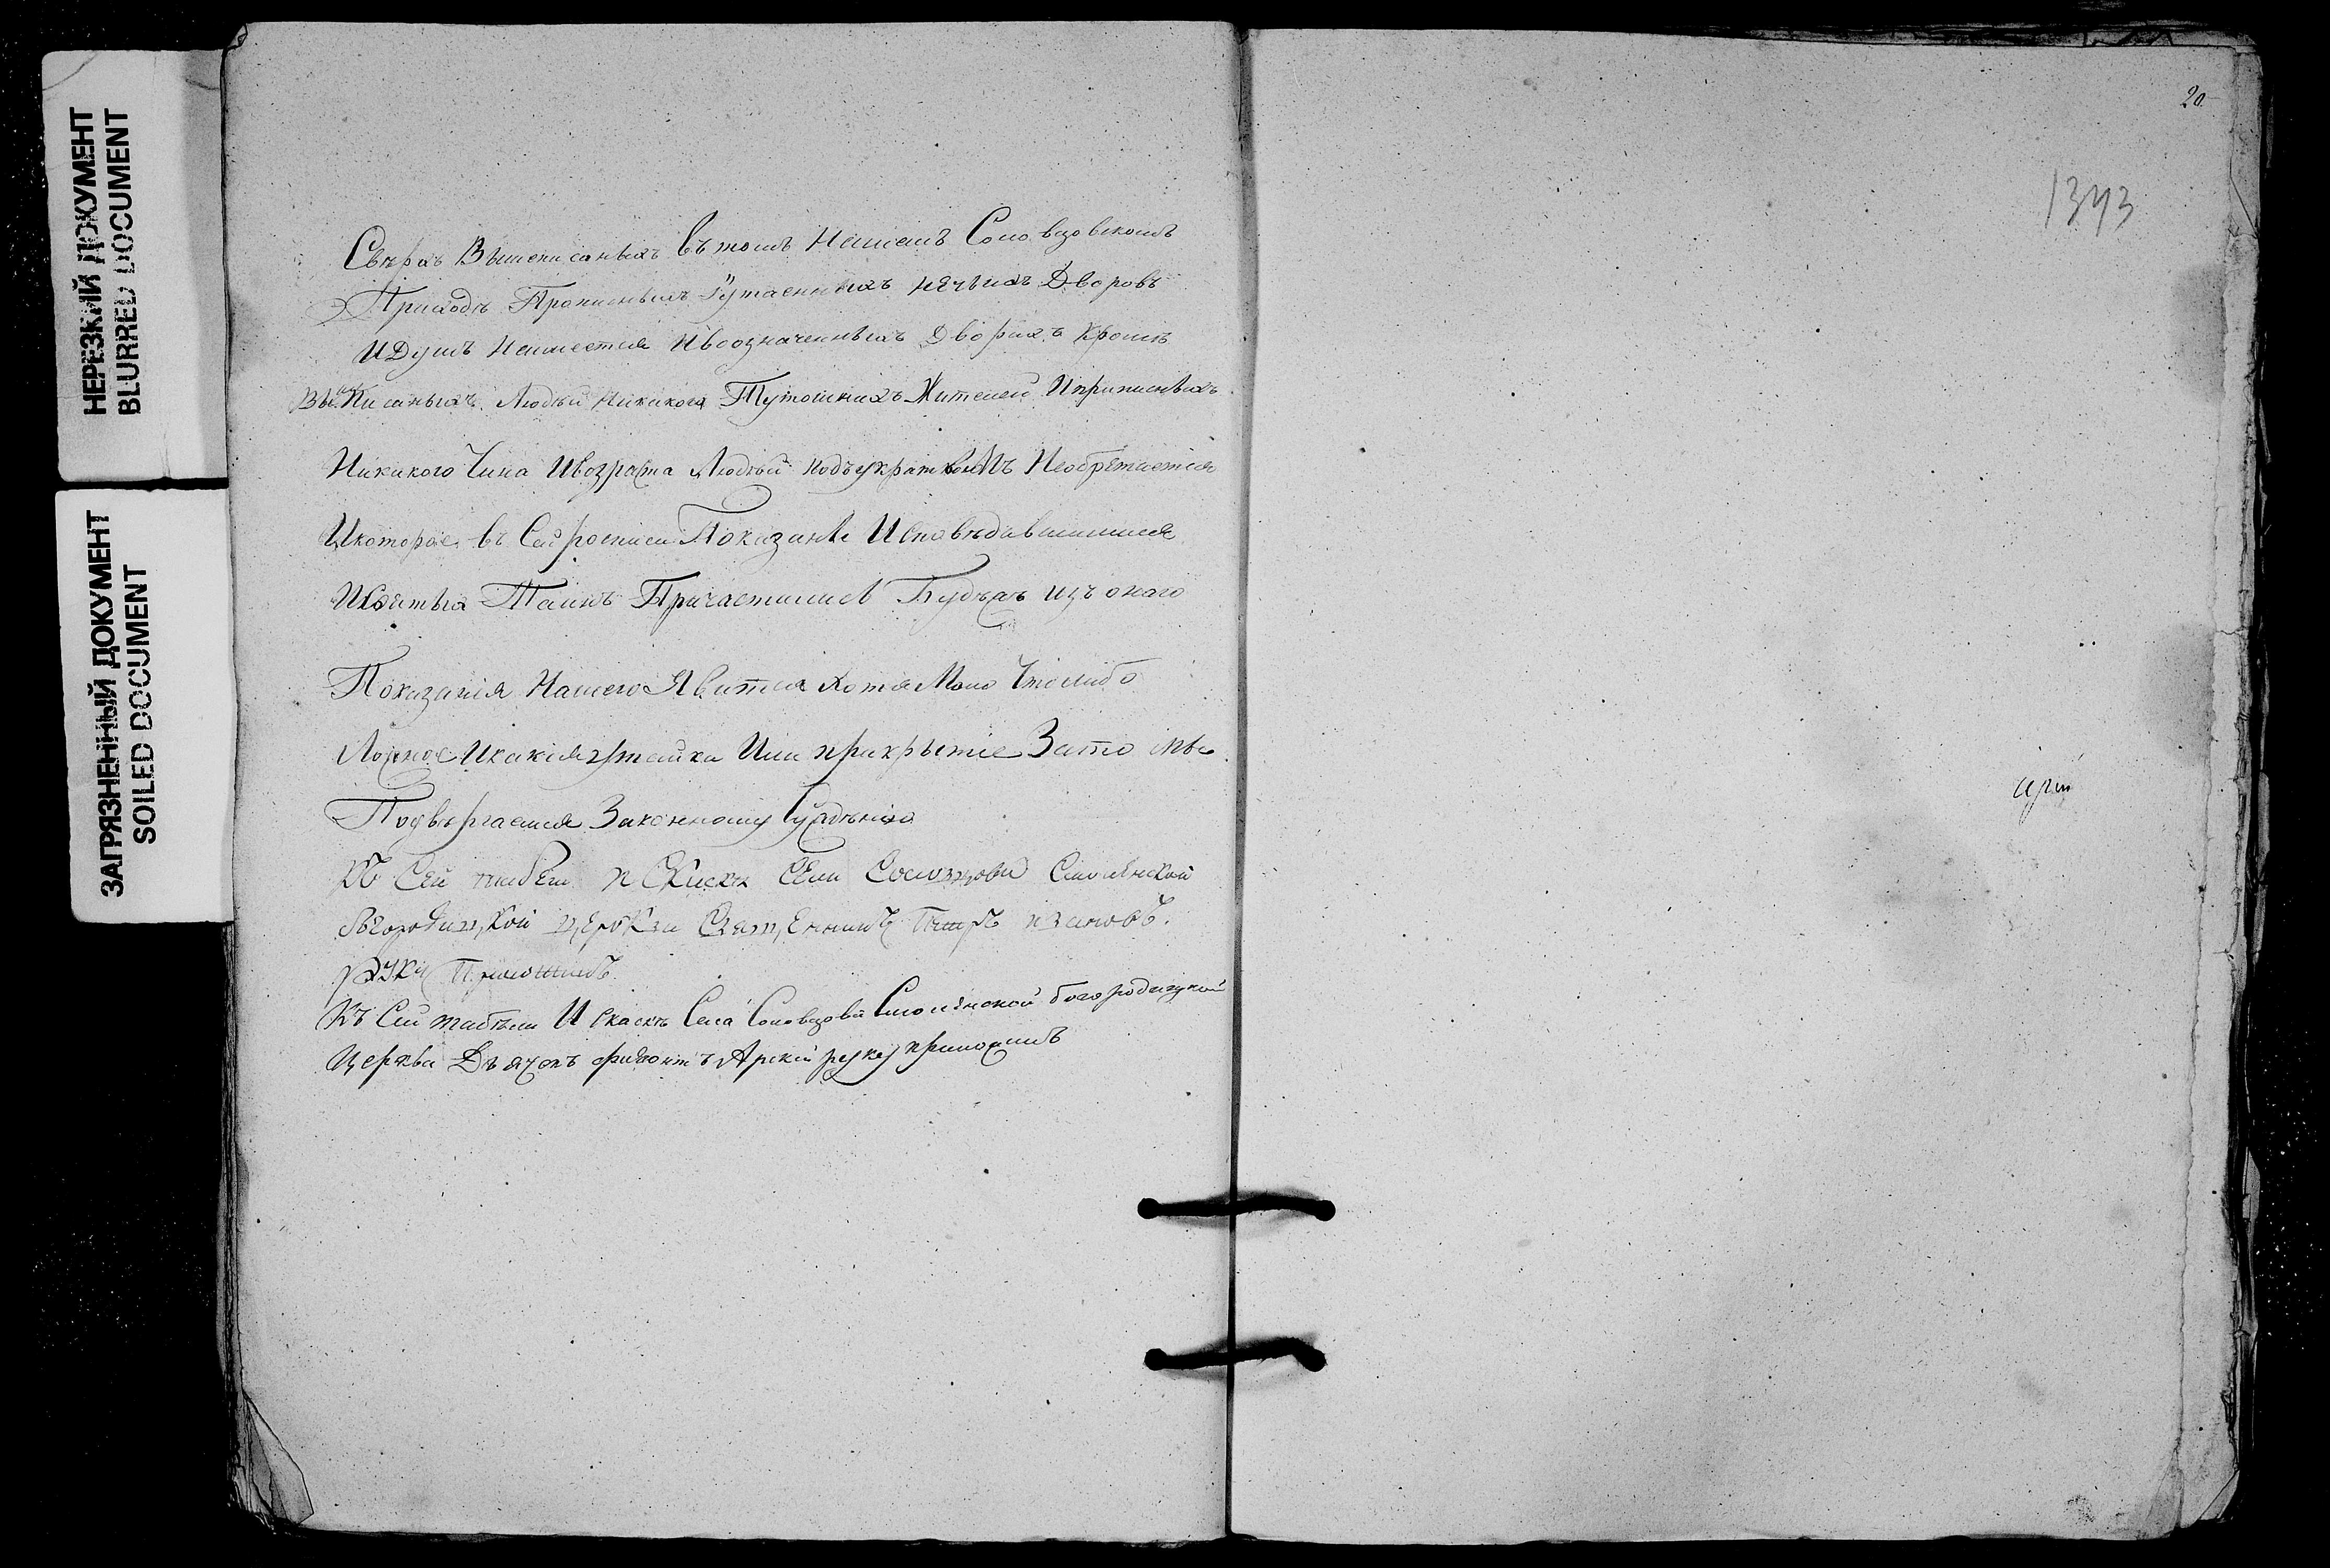 НЕРЕЗКИЙ ДОКУМЕНТ
BLURRED DOCUMENT
ЗАГРЯЗНЕННЫЙ ДОКУМЕНТ
SOILED DOCUMENT
Свѣрхъ Вышеписаныхъ въ томъ Нашемъ Соловцовскомъ
Приходѣ Прописныхъ Иутаенныхъ нечьихъ Дворовъ
И Душъ Неимеется Ивоозначенныхъ Дворахъ Кромѣ
Выше Писаныхъ Людѣй Никакого Тутошнихъ Жителей Иприписныхъ
Никакого Чина Ивозраста Людѣй Необрѣтается
Икоторые въ Сей росписи Показаны Исповѣдавшимися
Исвятыхъ Таинъ Причастились Будѣже изъ онаго
Показанія Нашего Явится хотя Мало Чтолибо
Ложное Икакия утайка Или прикрытіе Зато мы
Подвѣргаемся Законному Сужденію
Къ Сей табели И Скаски Села Соловцова Смоленской
Бгородицкой церкви Священникъ Петръ ивановъ
Руку Приложилъ
Къ Сей табели И скаскѣ Села Соловцова Смоленской богородицкой
Церкви Дьяконъ руку приложилъ
20
1343